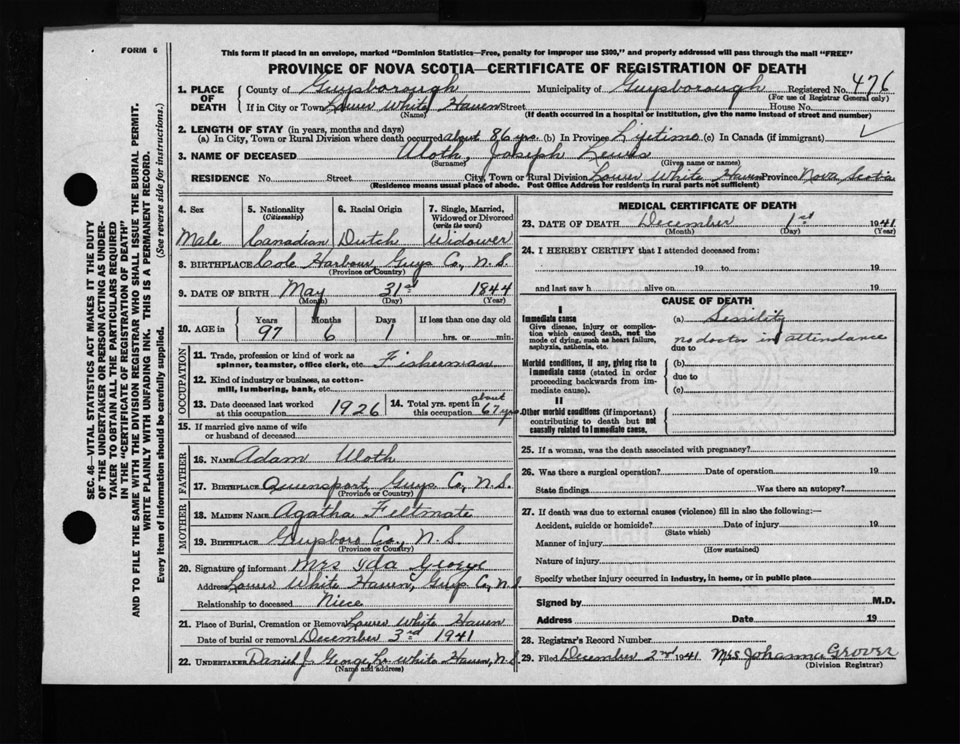 FORM 6
This form if placed in an envelope, marked "Dominion Statistics—Free, penalty for improper use $300," and properly addressed will pass through the mail "FREE"
PROVINCE OF NOVA SCOTIA—CERTIFICATE OF REGISTRATION OF DEATH
1. PLACE OF DEATH County of Guysborough Municipality of Guysborough Registered No. 476
(For use of Registrar General only)
If in City or Town Lower White Haven Street House No.
(Name) (If death occurred in a hospital or institution, give the name instead of street and number)
2. LENGTH OF STAY (in years, months and days)
(a) In City, Town or Rural Division where death occurred about 86 yrs. (b) In Province Lifetime (c) In Canada (if immigrant)
3. NAME OF DECEASED Uloth, Joseph Lewis
(Surname) (Given name or names)
RESIDENCE No. Street City, Town or Rural Division Lower White Haven Province Nova Scotia
(Residence means usual place of abode. Post Office Address for residents in rural parts not sufficient)
4. Sex 5. Nationality (Citizenship) 6. Racial Origin 7. Single, Married, Widowed or Divorced (write the word)
Male Canadian Dutch Widower
8. BIRTHPLACE Cole Harbour, Guys Co, N.S.
(Province or Country)
9. DATE OF BIRTH May 31st 1844
(Month) (Day) (Year)
10. AGE in Years Months Days If less than one day old
97 6 1 hrs. or min.
OCCUPATION
11. Trade, profession or kind of work as spinner, teamster, office clerk, etc. Fisherman
12. Kind of industry or business, as cotton-mill, lumbering, bank, etc.
13. Date deceased last worked at this occupation 1926 14. Total yrs. spent in this occupation about 67 yrs
15. If married give name of wife or husband of deceased
FATHER
16. NAME Adam Uloth
17. BIRTHPLACE Queensport, Guys Co, N.S.
(Province or Country)
MOTHER
18. MAIDEN NAME Agatha Feltmate
19. BIRTHPLACE Guysboro Co, N.S
(Province or Country)
20. Signature of informant Mrs Ida George
Address Lower White Haven, Guys Co, N.S
Relationship to deceased Niece
21. Place of Burial, Cremation or Removal Lower White Haven
Date of burial or removal December 3rd 1941
22. UNDERTAKER Daniel J. George, Lr White Haven, N.S
(Name and address)
MEDICAL CERTIFICATE OF DEATH
23. DATE OF DEATH December 1st 1941
(Month) (Day) (Year)
24. I HEREBY CERTIFY that I attended deceased from:
19 to 19
and last saw h alive on 19
CAUSE OF DEATH
I
Immediate cause (a) Senility
Give disease, injury or complication which caused death, not the mode of dying, such as heart failure, asphyxia, asthenia, etc.
no doctor in attendance
due to
Morbid conditions, if any, giving rise to immediate cause (stated in order proceeding backwards from immediate cause).
(b)
due to
(c)
II
Other morbid conditions (if important) contributing to death but not causally related to immediate cause.
25. If a woman, was the death associated with pregnancy?
26. Was there a surgical operation? Date of operation 19
State findings Was there an autopsy?
27. If death was due to external causes (violence) fill in also the following:—
Accident, suicide or homicide? Date of injury 19
(State which)
Manner of injury
(How sustained)
Nature of injury
Specify whether injury occurred in industry, in home, or in public place
Signed by M.D.
Address Date 19
28. Registrar's Record Number
29. Filed December 2nd 1941 Mrs Johanna Grover
(Division Registrar)
SEC. 46—VITAL STATISTICS ACT MAKES IT THE DUTY
OF THE UNDERTAKER OR PERSON ACTING AS UNDER-
TAKER TO OBTAIN ALL THE PARTICULARS REQUIRED
IN THE "CERTIFICATE OF REGISTRATION OF DEATH"
AND TO FILE THE SAME WITH THE DIVISION REGISTRAR WHO SHALL ISSUE THE BURIAL PERMIT.
WRITE PLAINLY WITH UNFADING INK. THIS IS A PERMANENT RECORD.
Every item of information should be carefully supplied. (See reverse side for instructions.)